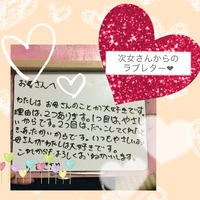 次女さんからの
ラブレター❤
お母さんへ
わたしは お母さんのことが大好きです。
理由は、2つあります。1つ目は、やさし
いからです。2つ目は、だっこしてくれたと
き、あたたかいからです。いつもやさしいお
母さんがわたしは大好きです。
これからもよろしくおねがいします。